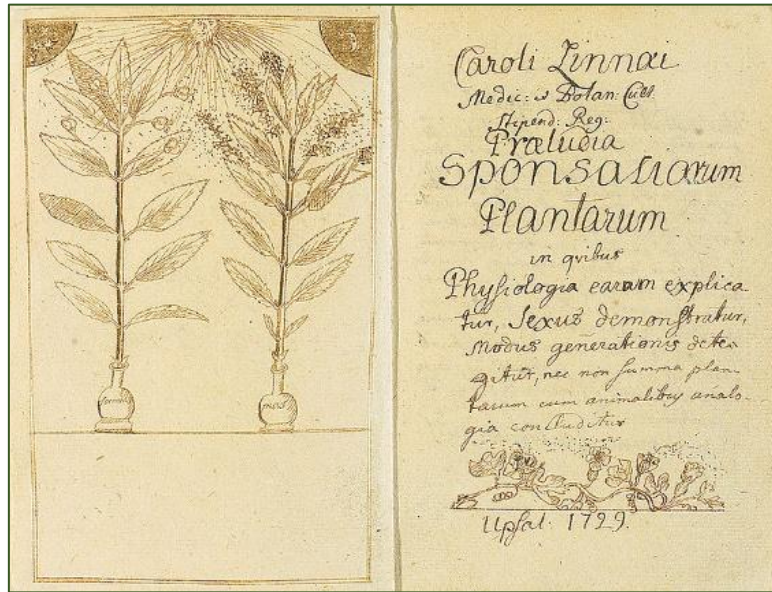 mas
Caroli Linnæi
Medic: & Botan: Cult
Stipend: Reg:
Præludia
Sponsaliarum
Plantarum
in qvibus
Physiologia earum explica
tur, Sexus demonstratur,
Modus generationis dete
gitur, nec non summa plan
tarum cum animalibus analo
gia concluditur
Upsal: 1729.